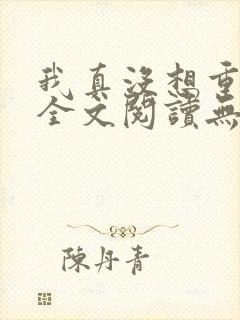 我真没想重
全文閱讀無
陳丹青